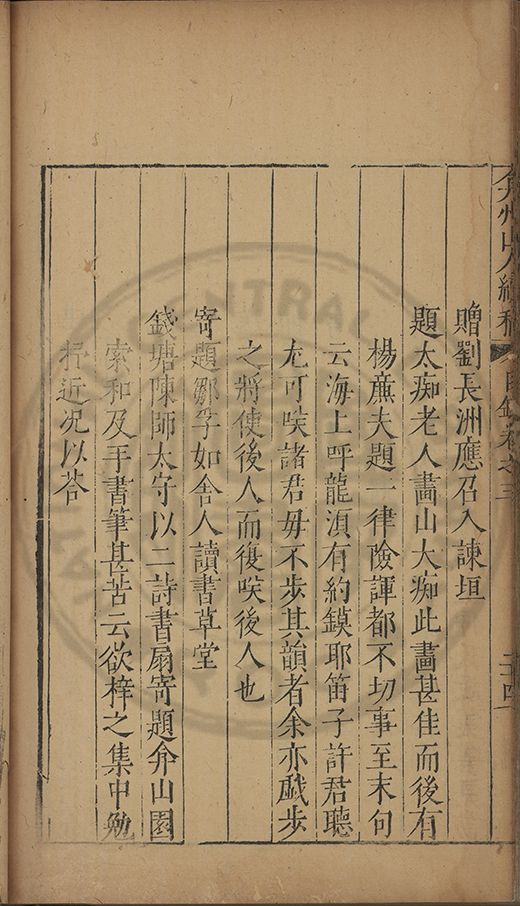 弇州山人續稿 目錄卷之三 二十四
贈劉長洲應召入諫垣
題大痴老人畵山大痴此畵甚佳而後有
楊廉夫題一律險譚都不切事至末句
云海上呼龍湏有約鏌耶笛子許君聽
尤可咲諸君毋不步其韻者余亦戯步
之將使後人而復咲後人也
寄題鄒孚如舍人讀書草堂
錢塘陳師太守以二詩書扇寄題弇山園
索和及手書筆甚苦云欲梓之集中勉
拧近况以荅
CENTRAL